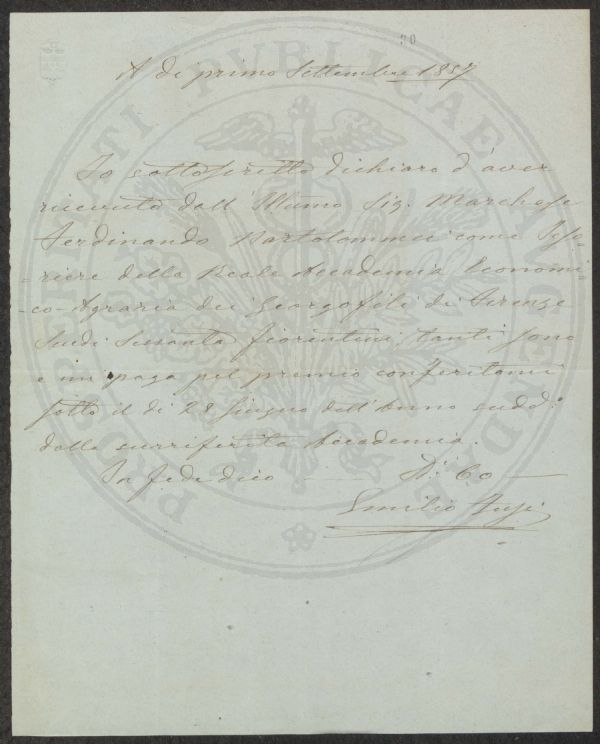 A di primo Settembre 1857
Io sottoscritto dichiaro d'aver
ricevuto dall' Illumo Sig. Marchese
Ferdinando Bartolommei come Teso=
=riere della Reale Accademia Economi=
=co-Agraria dei Georgofili di Firenze
Scudi Sessanta fiorentini, tanti sono
e mi paga pel premio conferitomi
sotto il di 28 Giugno dell'Anno sudd:o
dalla surriferita Accademia.
In fede dico — 60 —
Emilio
PROSPERITATI PVBLICAE AVGENDAE